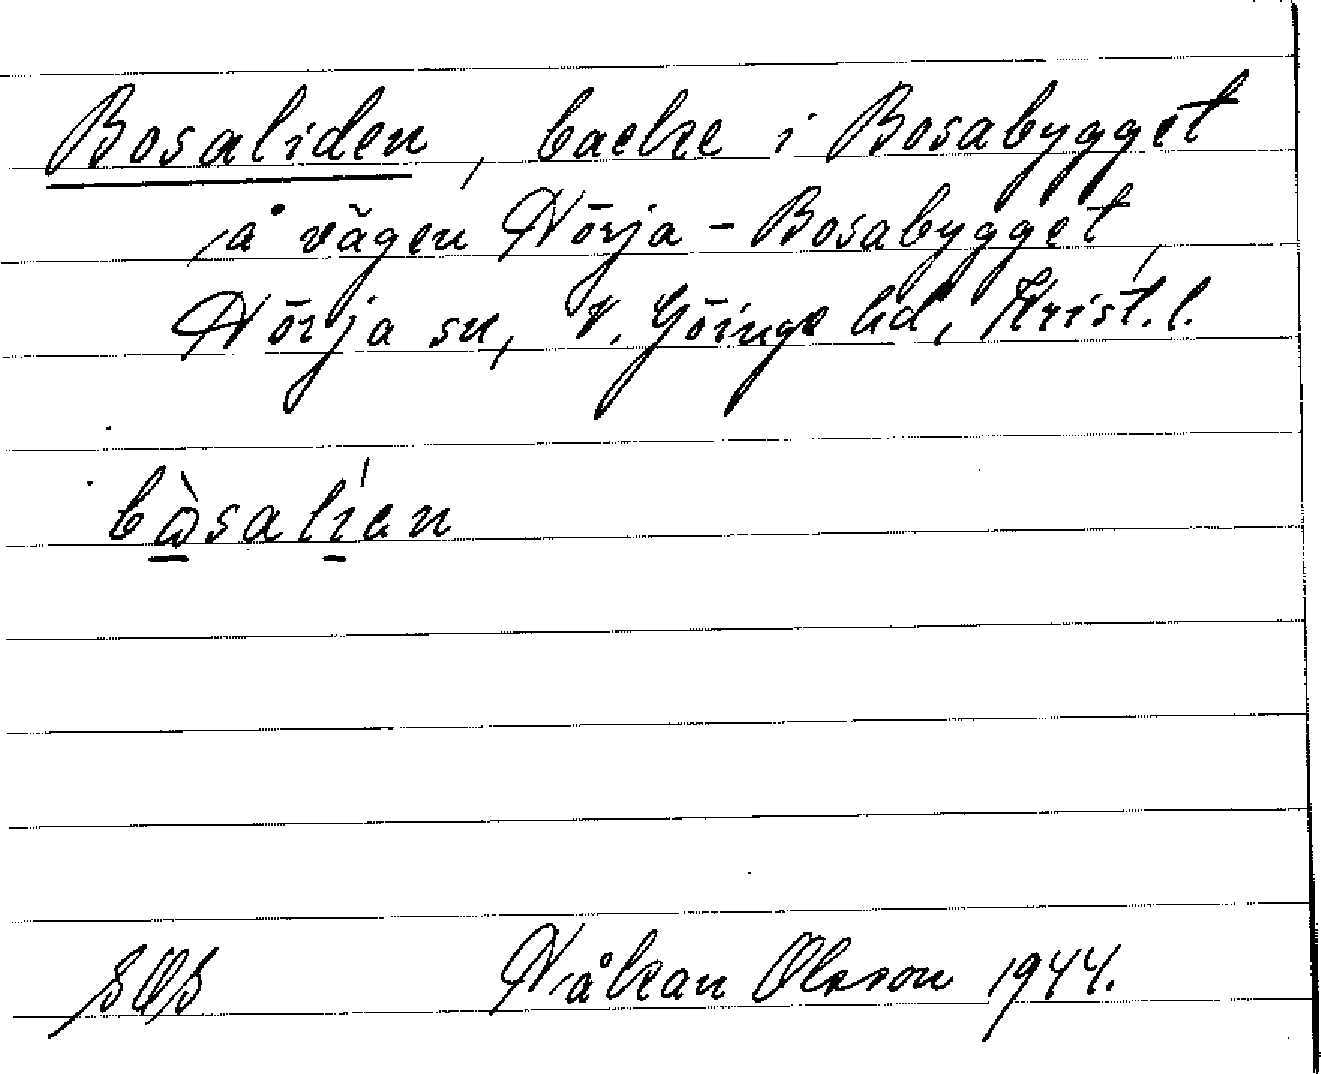 Bosaliden, backe i Bosabygget
, å vägen Hörja - Bosabygget,
Hörja sn, V. Göinge hd, Krist. l.
bὼsalíen
Håkan Olsson 1944.